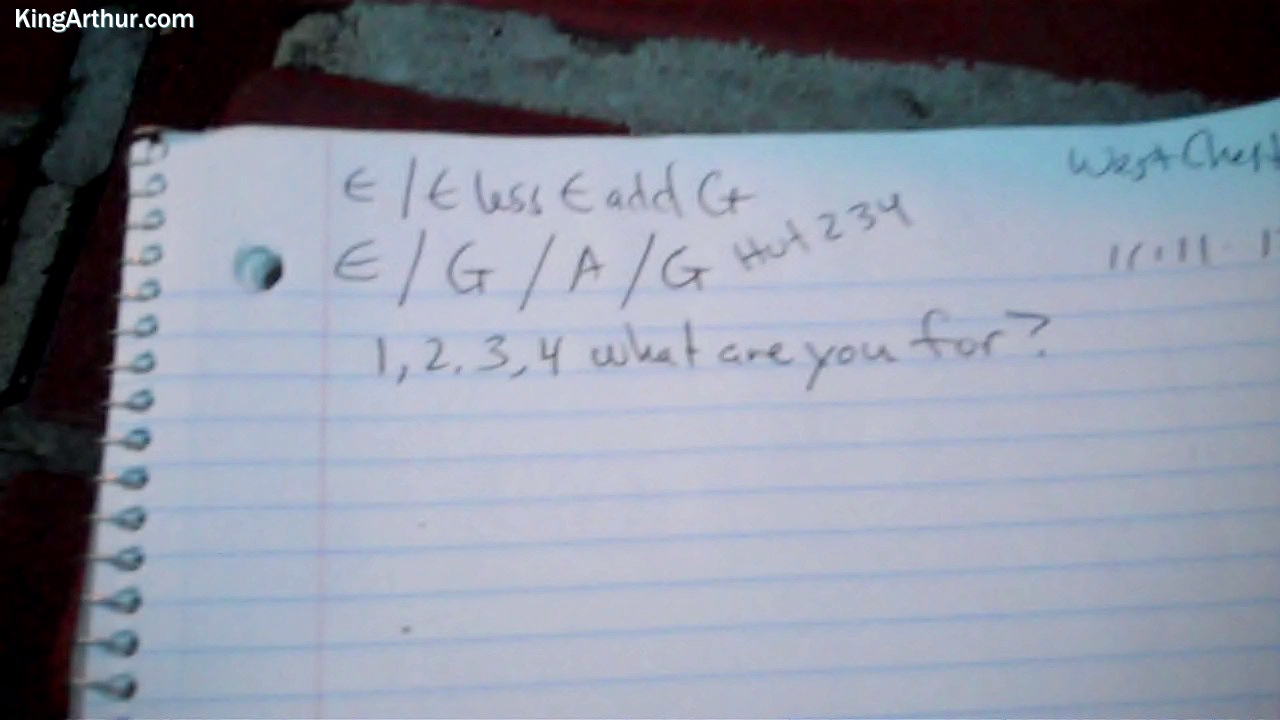 KingArthur.com
West Chest
E / E less E add G
E / G / A / G Hut 2 3 4
11.11.1
1, 2, 3, 4 what are you for?